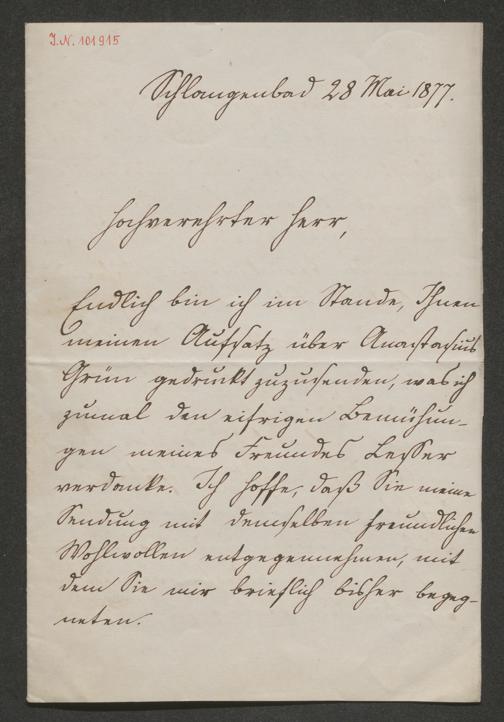 J.N. 101915
Schlangenbad 28 Mai 1877.
Hochverehrter Herr,
Endlich bin ich im Stande, Ihnen
meinen Aufsatz über Anastasius
Grün gedruckt zuzusenden, was ich
zumal den eifrigen Bemühun-
gen meines Freundes Lesser
verdanke. Ich hoffe, daß Sie meine
Sendung mit demselben freundlichen
Wohlwollen entgegennehmen, mit
dem Sie mir brieflich bisher begeg-
neten.